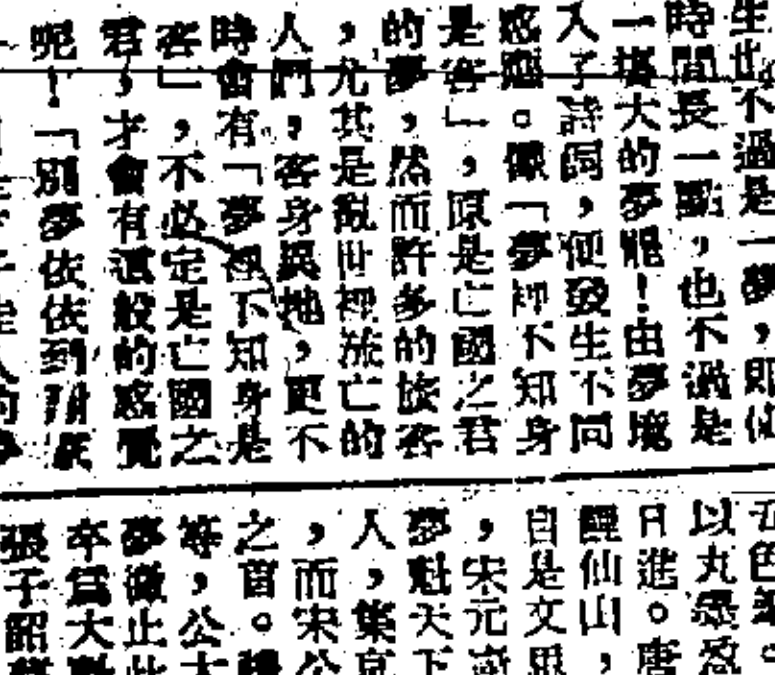 生也不過是一夢，即使
時間長一點，也不過是
一場大的夢罷！由夢境
入了詩詞，便發生不同
感應。像「夢裡不知身
是客」，原是亡國之君
的夢，然而許多的旅客
，尤其是亂世裡流亡的
人們，客身異地，更不
時會有「夢裡不知身是
客」，不必定是亡國之
君，才會有這般的感覺
呢！「別夢依依到謝家
五色
以丸墨
日進。唐
醒仙山，
自是文思
，宋元
夢魁天下
人，集京
，而宋公
之首。
等，公大
夢徵止此
卒爲大魁
張子韶